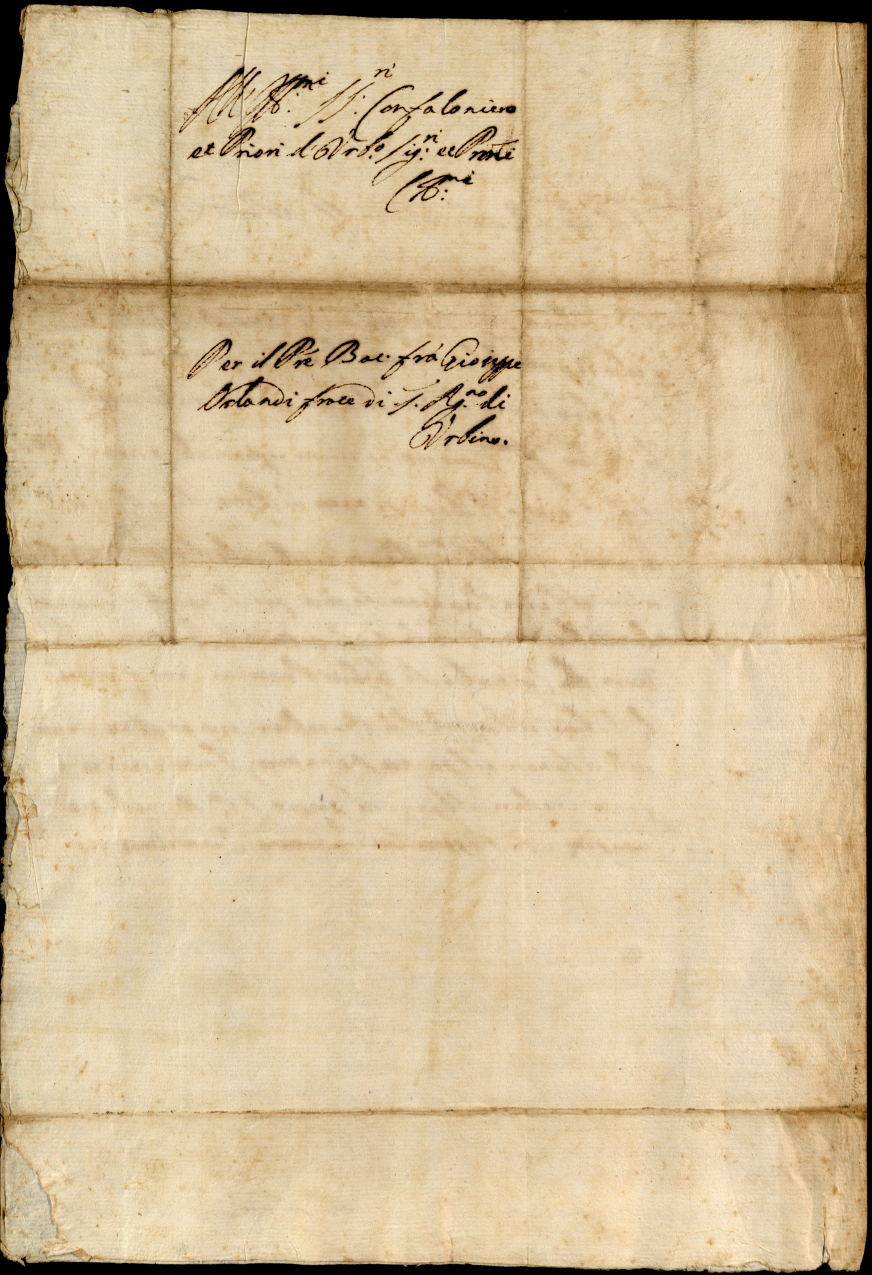 All' Ill:mi SS:ri Confaloniero
et Priori d'Urb:o Sig:ri et Proni
Col:mi
Per il Pre Bac: frà Gioseppe
Orlandi frate di S. Ag:no di
Urbino.